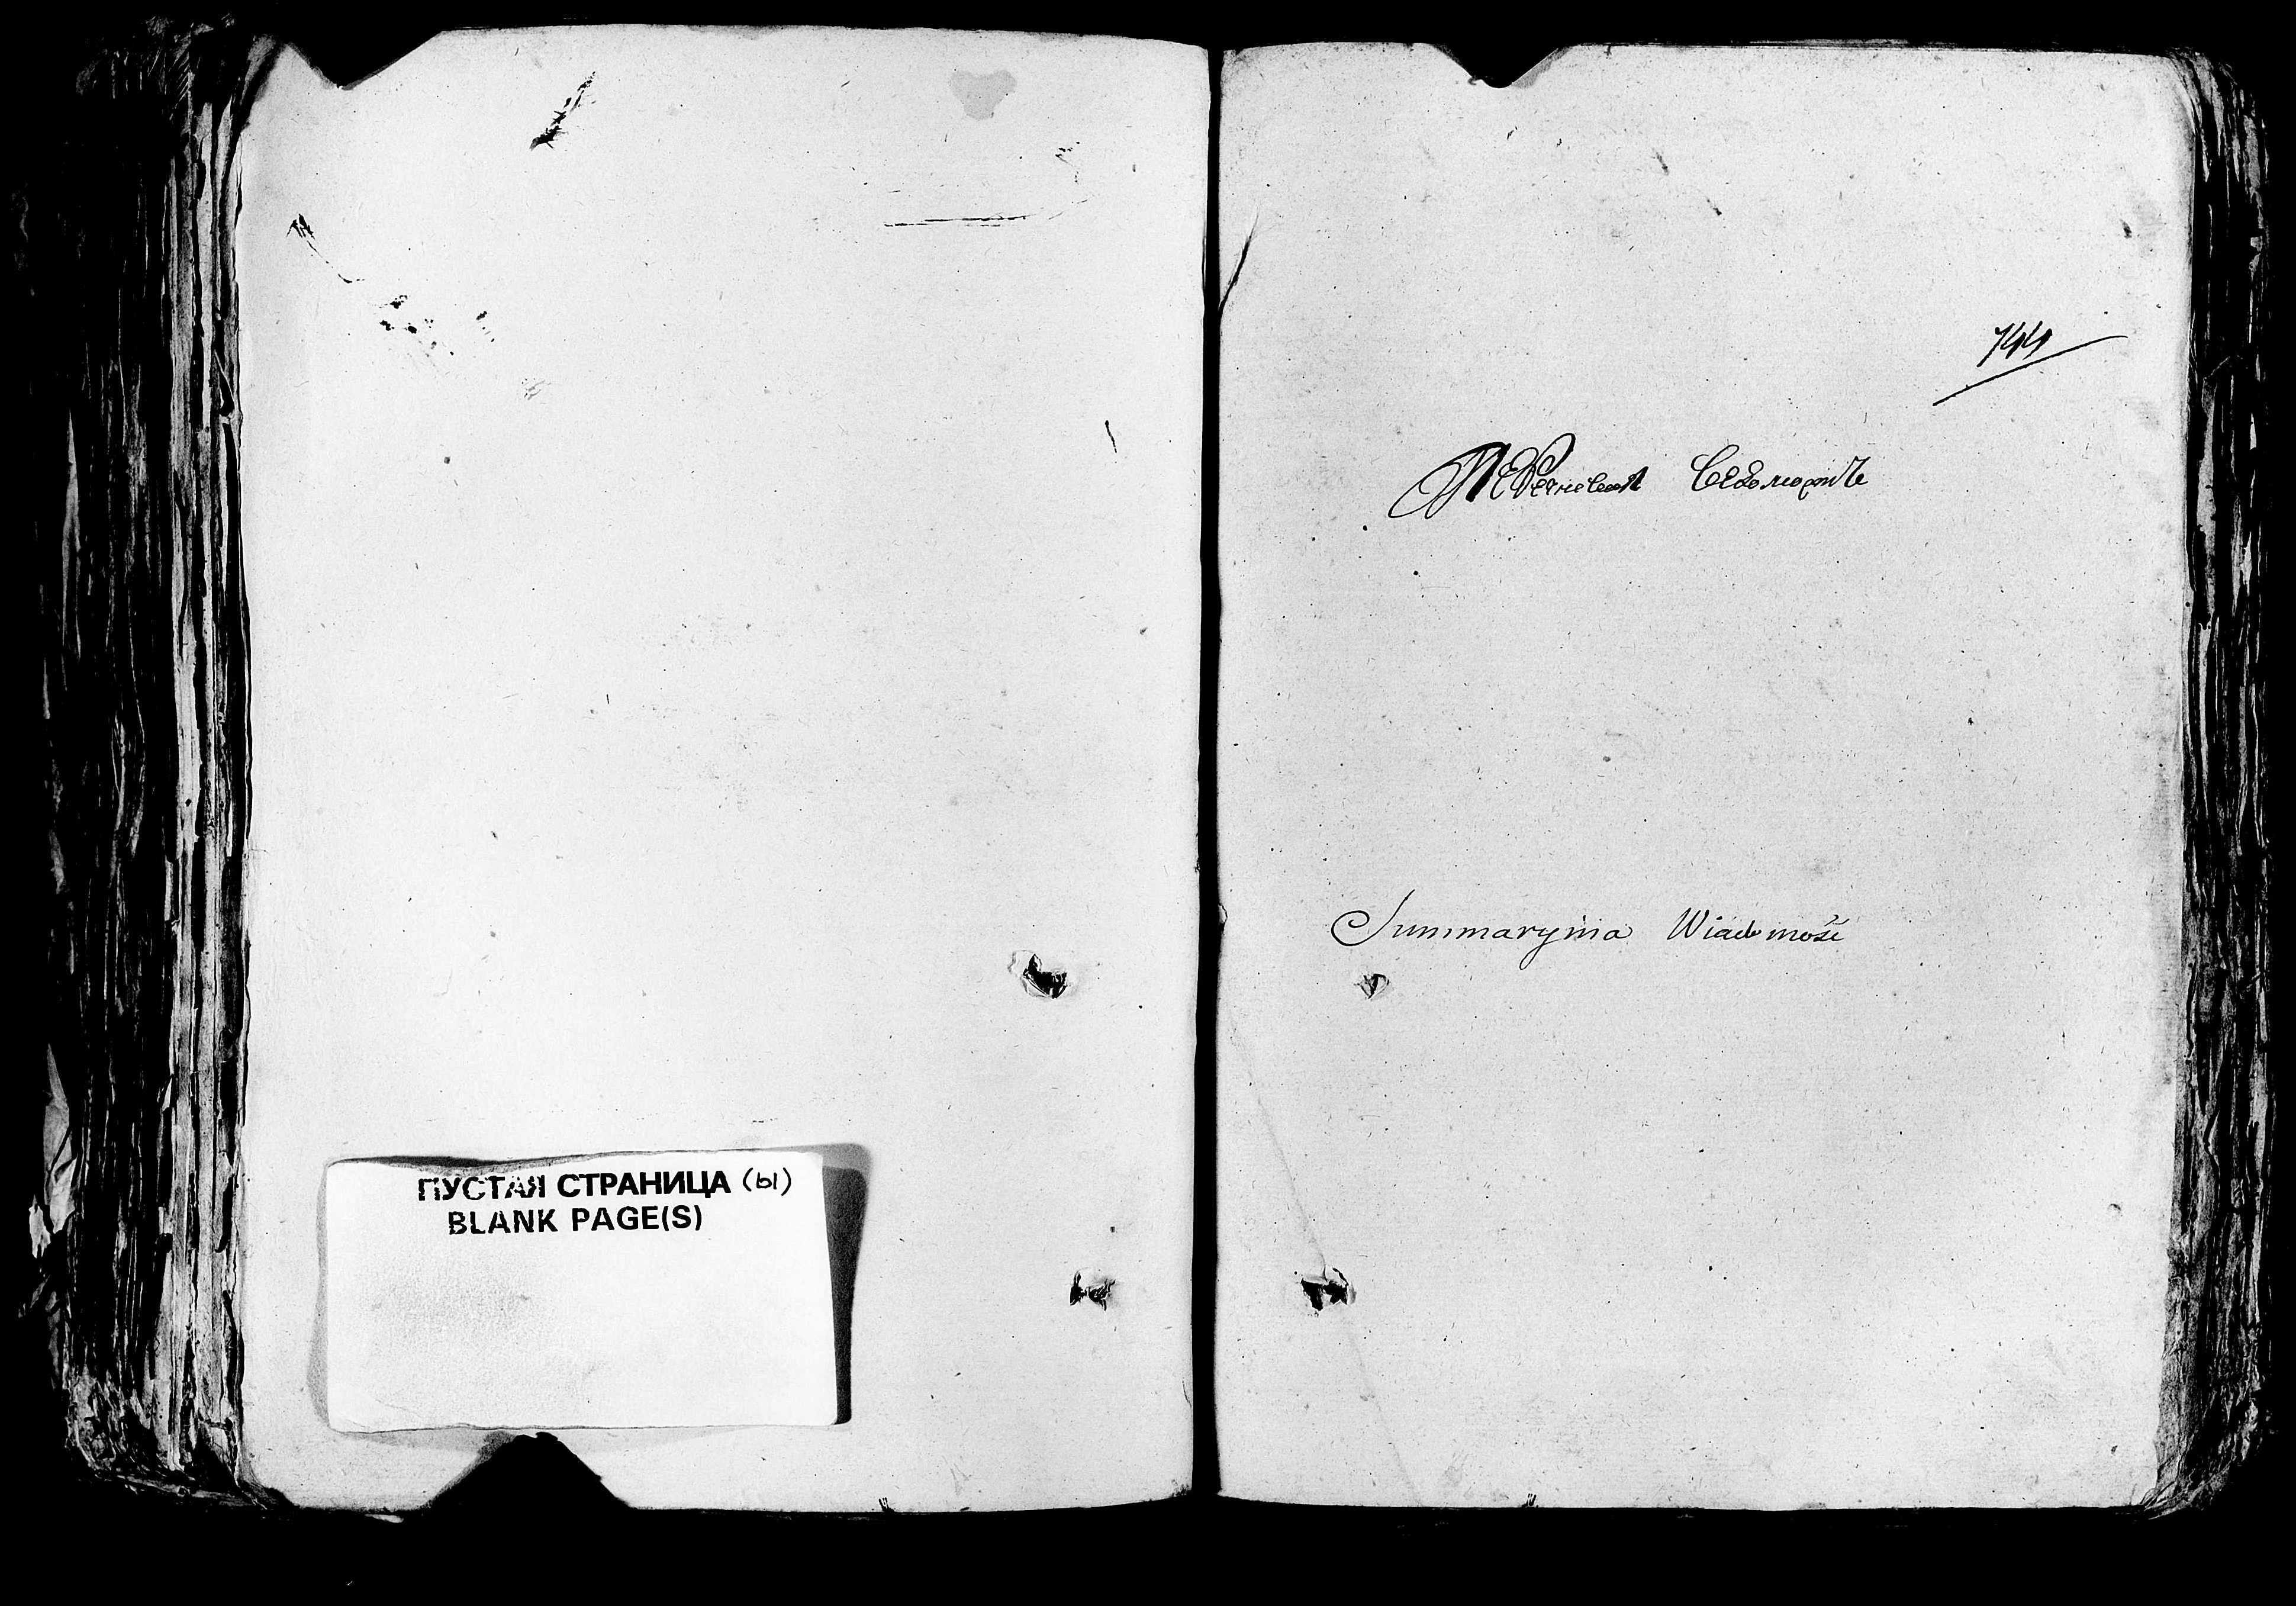 ПУСТАЯ СТРАНИЦА (ы)
BLANK PAGE(S)
744
Ведомость
Summaryina Wiadomość